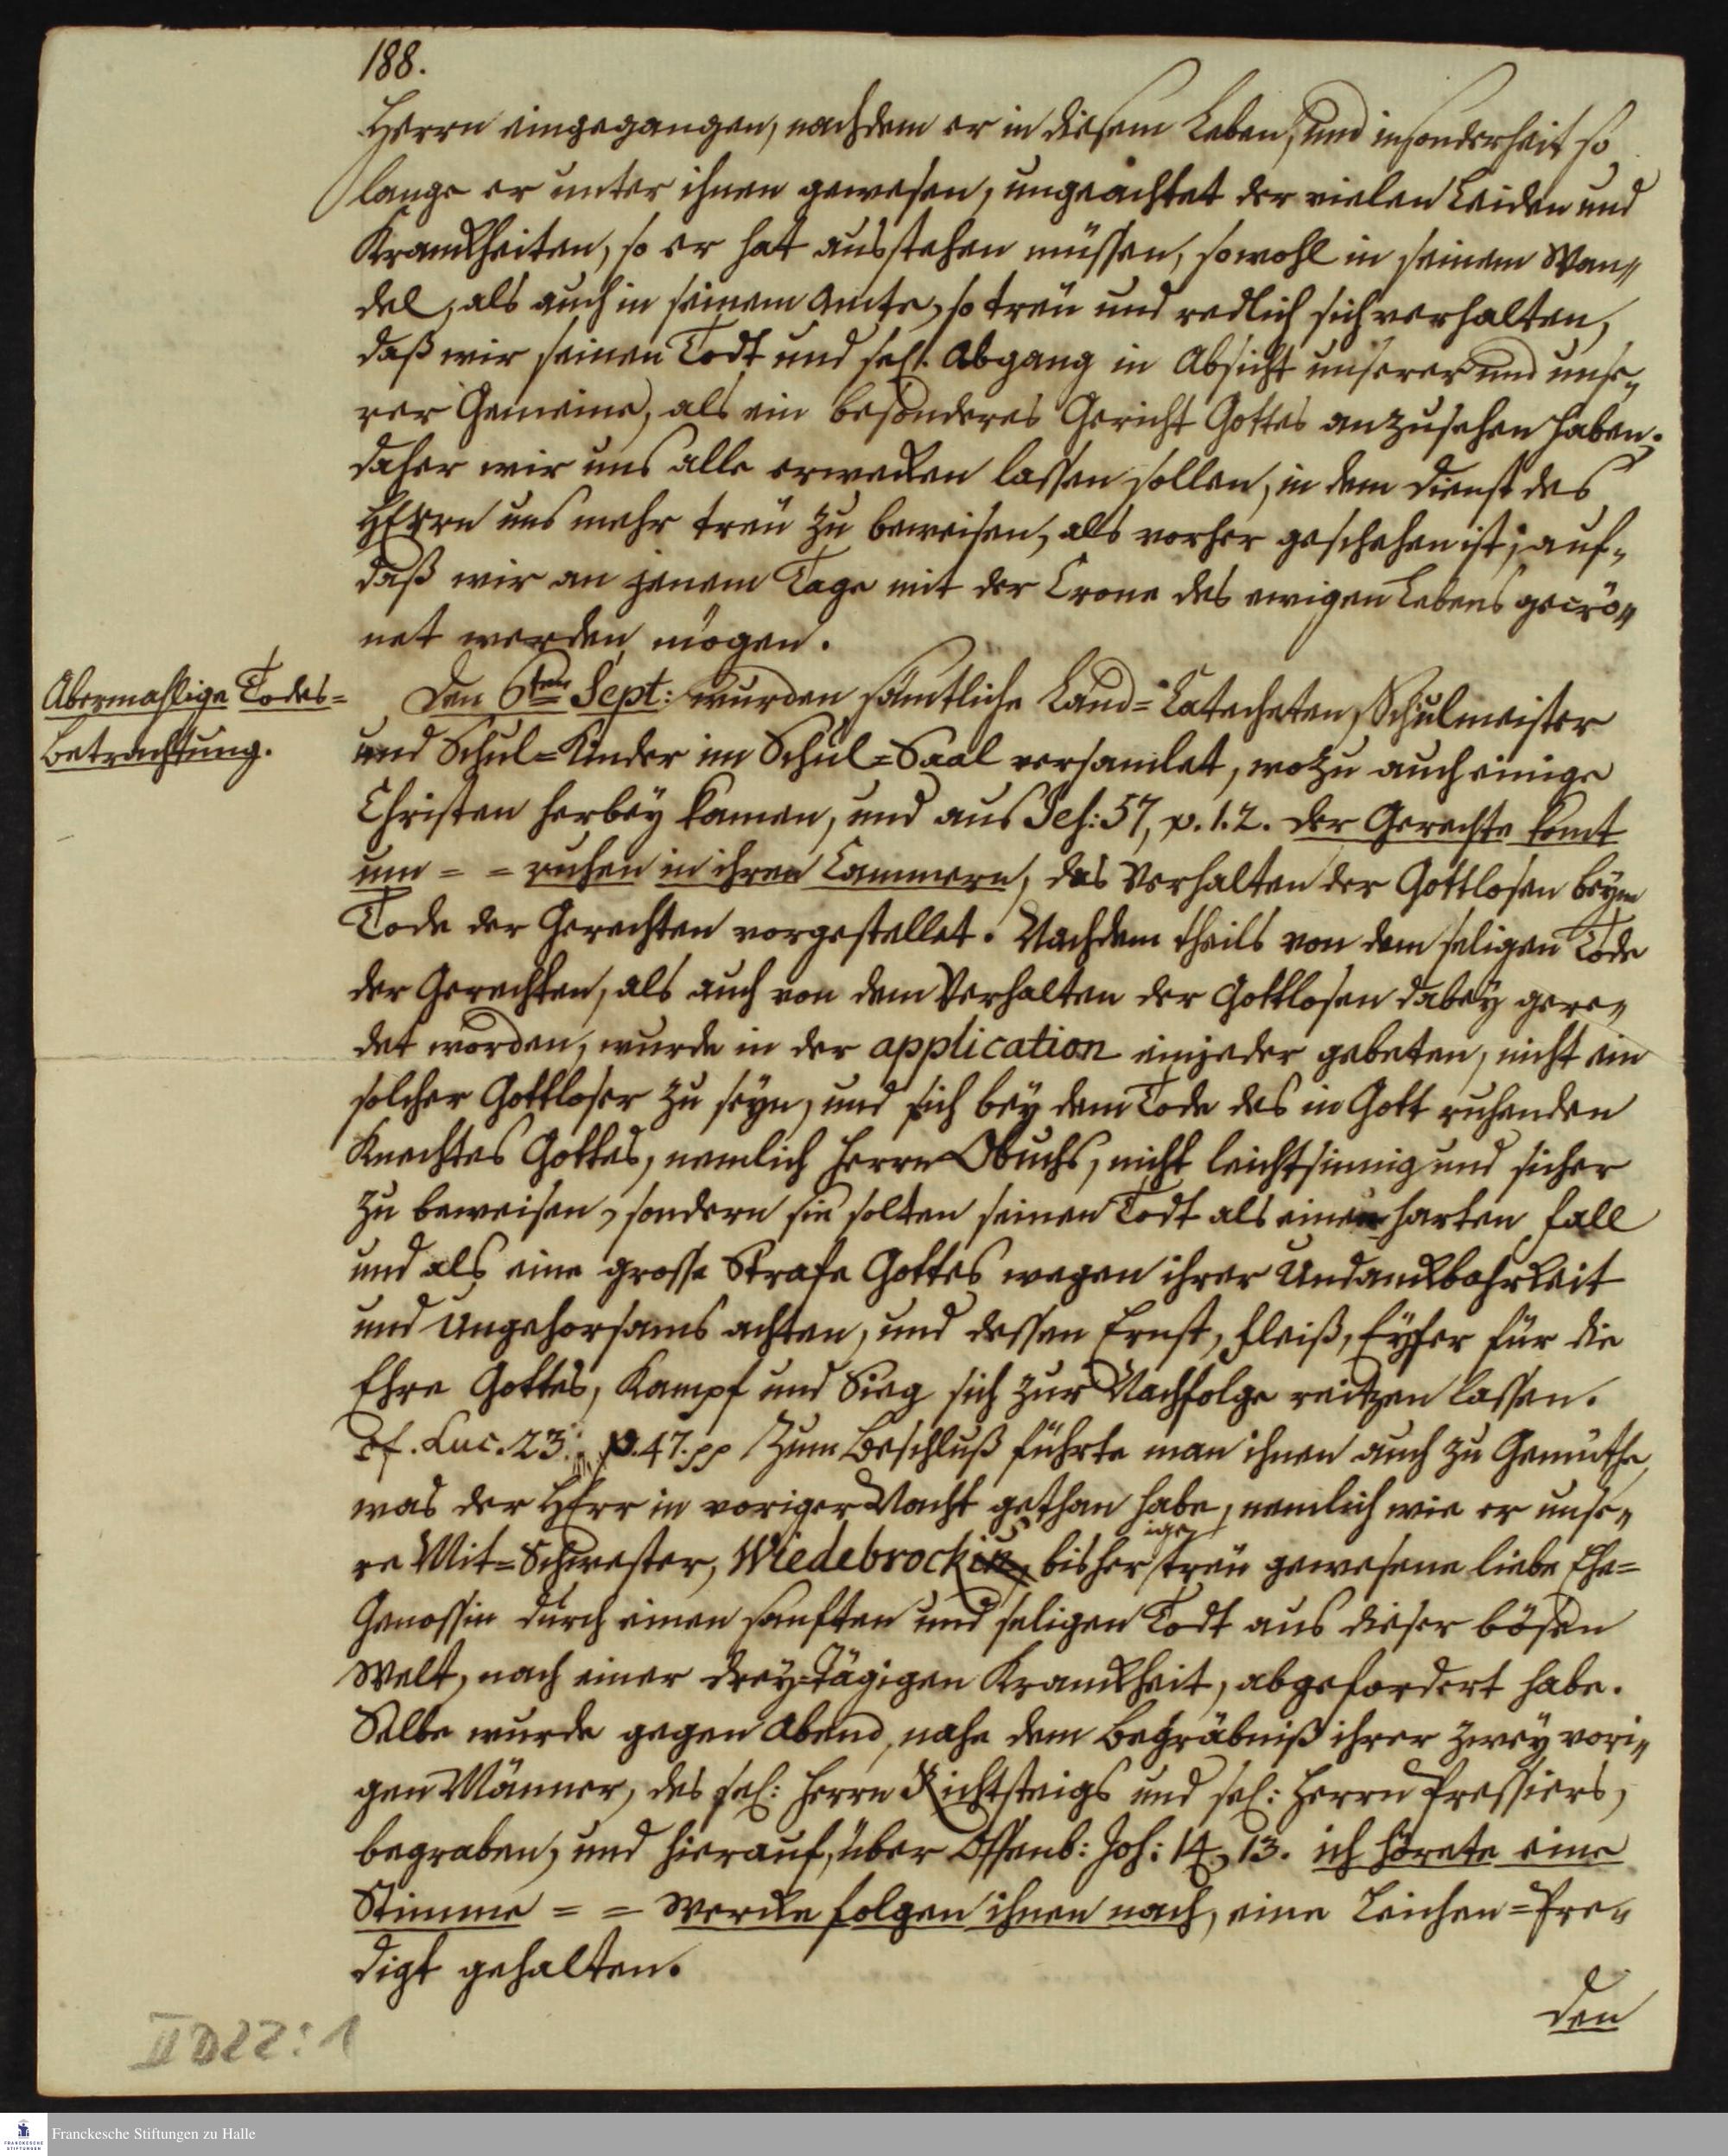 188.
Herrn eingegangen, nachdem er in diesem Leben, und insonderheit so
lange er unter ihnen gewesen, ungeachtet der vielen Leiden und
Kranckheiten, so er hat ausstehen müssen, sowohl in seinem Wan=
del, als auch in seinem Amte, so treu und redlich sich verhalten,
daß wir seinen Todt und sel. Abgang in Absicht unserer und unse=
rer Gemeine, als ein besonderes Gericht Gottes anzusehen haben;
daher wir uns alle erwecken lassen sollen, in dem Dienst des
HErrn uns mehr treu zu beweisen, als vorher geschehen ist; auf=
daß wir an jenem Tage mit der Crone des ewigen Lebens gecrö=
net werden mögen.
Abermahlige Todes=
Betrachtung.
Den 6ten Sept: wurden sämtliche Land=Catecheten, Schulmeister
und Schul=Kinder im Schul=Saal versamlet, wozu auch einige
Christen herbey kamen, und aus Jes: 57, v. 1. 2. der Gerechte komt
um = = ruhen in ihren Cammern, das Verhalten der Gottlosen beym
Tode der Gerechten vorgestellet. Nachdem theils von dem seligen Tode
der Gerechten, als auch von dem Verhalten der Gottlosen dabey gere=
det worden, wurde in der application einjeder gebeten, nicht ein
solcher Gottloser zu seyn, und sich bey dem Tode des in Gott ruhenden
Knechtes Gottes, nemlich Herrn Obuchs, nicht leichtsinnig und sicher
zu beweisen, sondern sie solten seinen Todt als einen harten Fall
und als eine grosse Strafe Gottes wegen ihrer Undanckbahrkeit
und Ungehorsams achten, und dessen Ernst, Fleiß, Eyfer für die
Ehre Gottes, Kampf und Sieg sich zur Nachfolge reitzen lassen.
cf. Luc. 23. v. 47. pp Zum Beschluß führte man ihnen auch zu Gemüthe,
was der HErr in voriger Nacht gethan habe, nemlich wie er unse=
re Mit=Schwester, Wiedebrocks bisherige treu gewesene liebe Ehe=
Genossin durch einen sanften und seligen Todt aus dieser bösen
Welt, nach einer drey=tägigen Kranckheit, abgefordert habe.
Selbe wurde gegen Abend, nahe dem Begräbniß ihrer zwey vori=
gen Männer, des sel: Herrn Richtsteigs und sel: Herrn Pressiers,
begraben, und hierauf, über Offenb: Joh: 14, 13. ich hörete eine
Stimme = = Wercke folgen ihnen nach, eine Leichen=Pre=
digt gehalten.
Den
II D22:1
Franckesche Stiftungen zu Halle